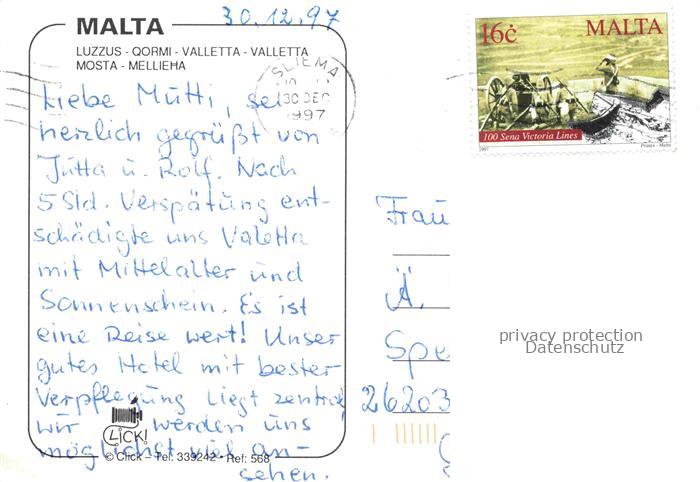 30.12.97
MALTA
LUZZUS - QORMI - VALLETTA - VALLETTA
MOSTA - MELLIEHA
Liebe Mutti, sei
herzlich gegrüßt von
Jutta u. Rolf. Nach
5 Std. Verspätung ent-
schädigte uns Valetta
mit Mittelalter und
Sonnenschein. Es ist
eine Reise wert! Unser
gutes Hotel mit bester
Verpflegung liegt zentral
wir werden uns
möglichst viel an-
sehen.
CLICK!
© Click – Tel: 339242 • Ref: 568
SLIEMA
30 DEC
1997
16ċ MALTA
100 Sena Victoria Lines
1997
Printex - Malta
Frau
Ä.
Spe
26203
privacy protection
Datenschutz